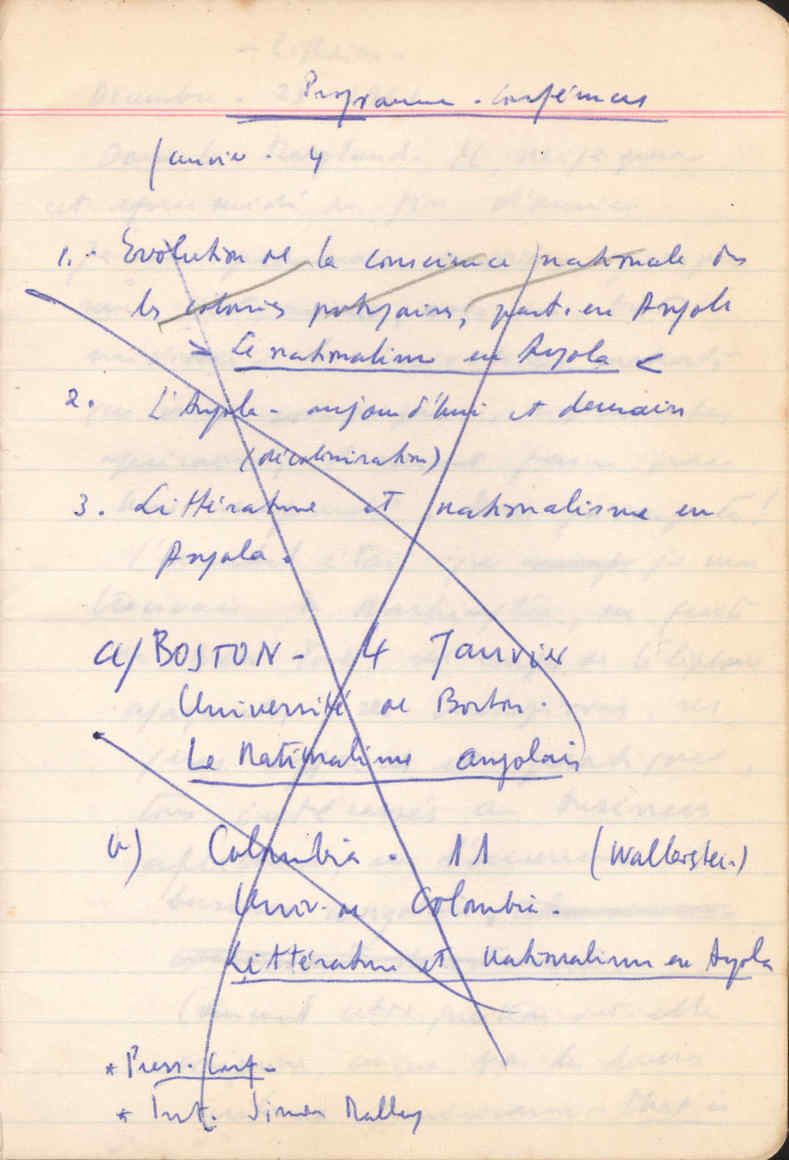 Programme - Conférences
Janvier - 4
1. - Evolution de la conscience nationale ds
les colonies portugaises, part. en Angola
> Le nationalisme en Angola <
2. L'Angola - aujourd'hui et demain
(décolonisation)
3. Littérature et nationalisme en
Angola.
a/ BOSTON - 4 Janvier
Université de Boston.
Le Nationalisme angolais
b) Columbia - 11 (Wallerstein)
Univ. de Columbia.
Littérature et nationalisme en Angola
* Press. Conf.
* Int. Malley